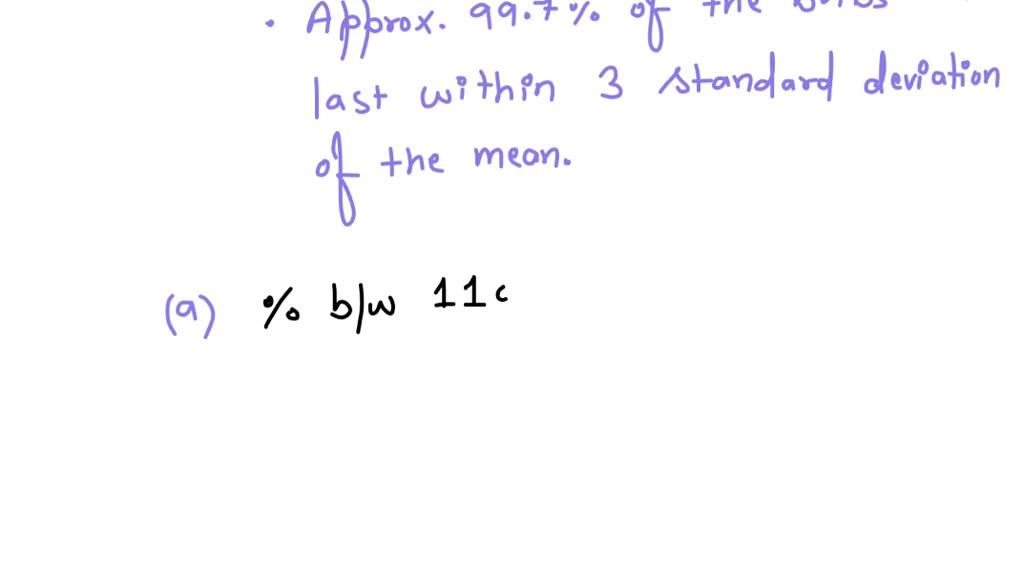 • Approx. 99.7% of the
last within 3 standard deviation
of the mean.
(a) % b/w 11